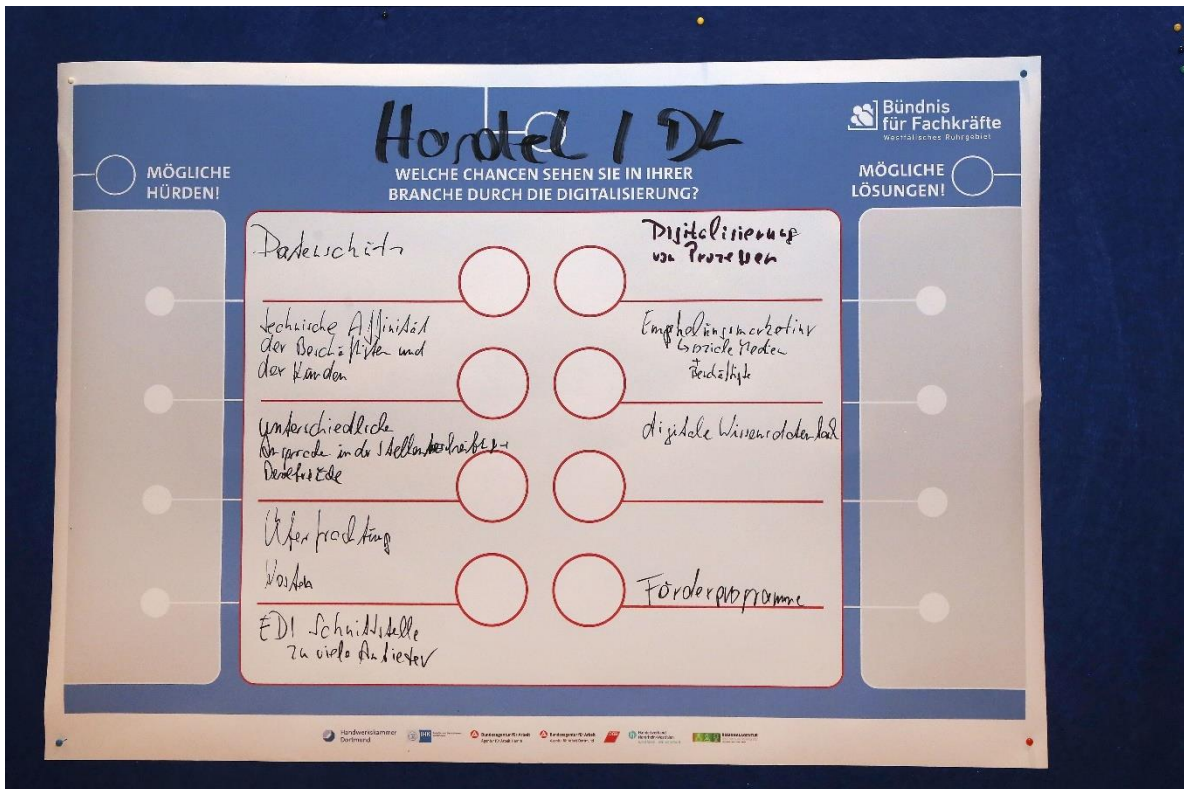 Handel / DL
Bündnis
für Fachkräfte
Westfälisches Ruhrgebiet
MÖGLICHE
HÜRDEN!
WELCHE CHANCEN SEHEN SIE IN IHRER
BRANCHE DURCH DIE DIGITALISIERUNG?
MÖGLICHE
LÖSUNGEN!
Datenschutz
technische Affinität
der Beschäftigten und
der Kunden
unterschiedliche
Ansprache in der
Überfrachtung
Kosten
EDI Schnittstelle
zu viele Anbieter
Digitalisierung
von Prozessen
Empfehlungsmarketing
↳ soziale Medien
+
Beschäftigte
digitale Wissensdatenbank
Förderprogramme
Handwerkskammer
Dortmund
IHK
Bundesagentur für Arbeit
Bundesagentur für Arbeit